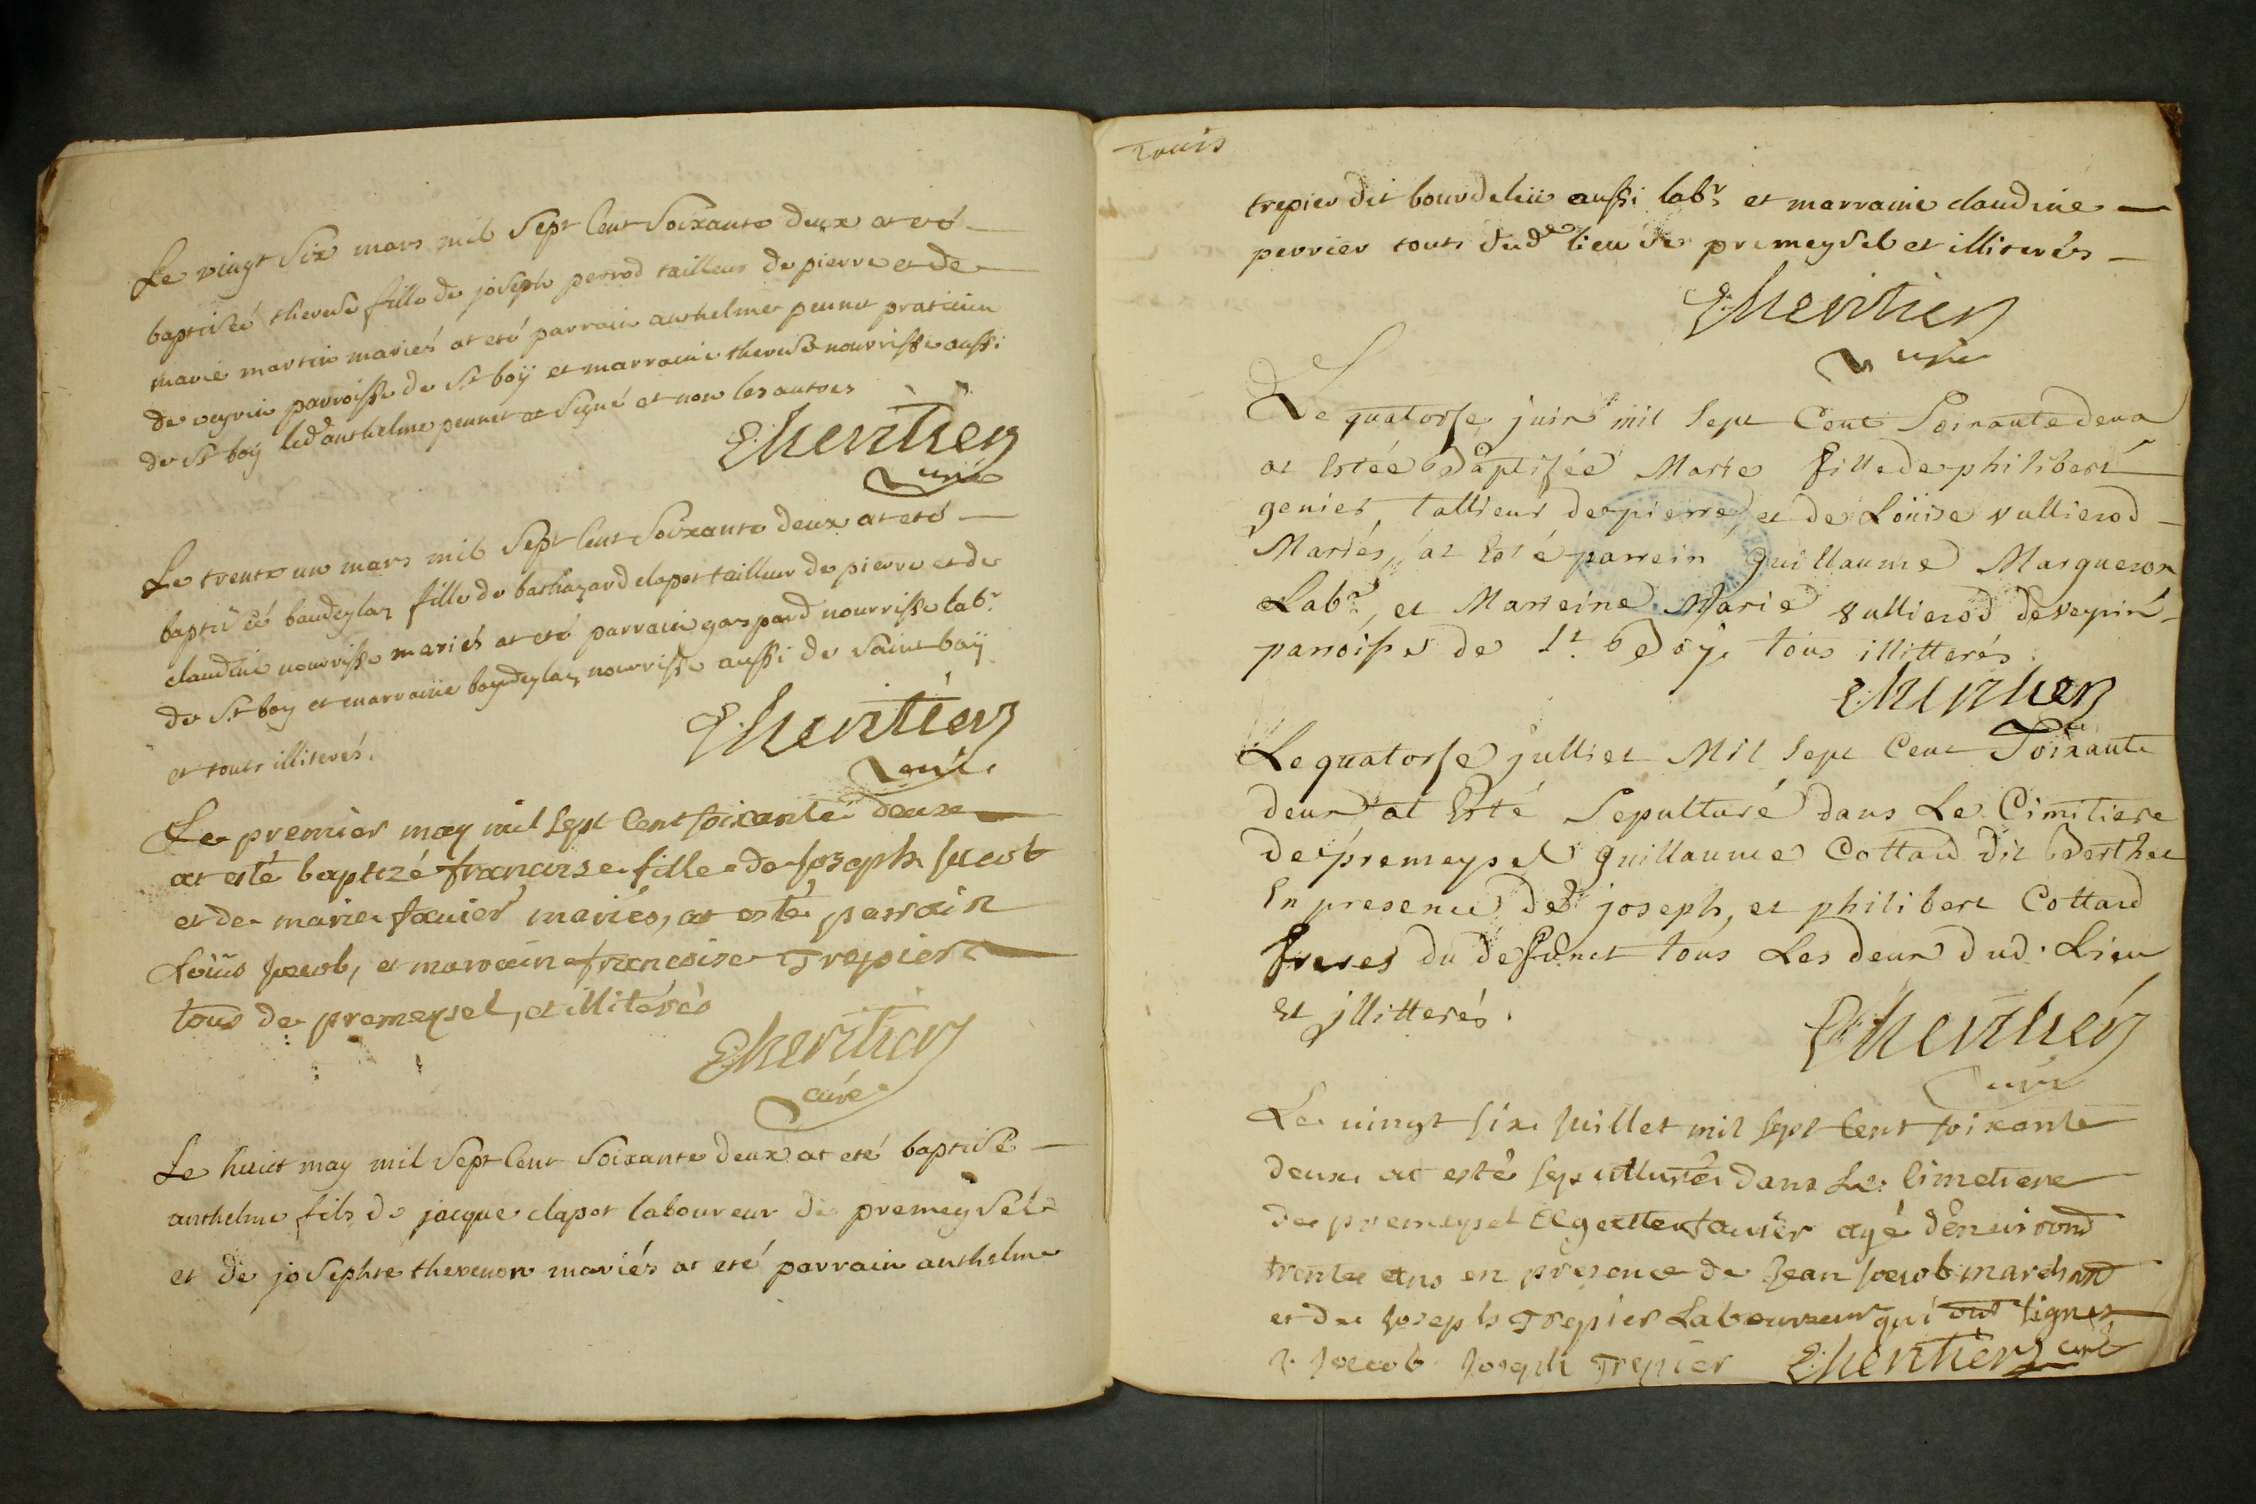 Le vingt Six mars mil Sept Cent Soixante deux at eté
baptiseé therese fille de joseph perrod tailleur de pierre et de
marie martin mariés at eté parrain anthelme peunet praticien
de veyrin parroisse de St boÿ et marraine therese nourrisse aussi
de St boÿ led anthelme peunet at Signé et non les autres
E. heritier
curé
Le trente un mars mil Sept Cent Soixante deux at eté
baptiseé fille de bathazard clapot tailleur de pierre et de
claudine nourrisse mariés at eté parrain gaspard nourrisse labr
de St boy et marraine nourrisse aussi de Saint boÿ
et touts illiterés.
E. heritier
curé.
Le premier may mil Sept Cent soixante deux
at esté baptizé francoise fille de Joseph Jacob
et de marie fauier mariés, at esté parrain
Loüis Jacob, et marraine francoise Trepier
tous de premeysel, et illiterés
E. heritier
curé
Le huict may mil Sept Cent Soixante deux at eté baptisé
anthelme fils de jacque clapot laboureur de premeysel
et de josephte thevenon mariés at eté parrain anthelme
Trois
trepier dit aussi labr et marraine claudine
perrier touts dud lieu de premeysel et illiterés
E. heritier
curé
Le quatorse juin mil Sept Cent Soixante deux
at Estée Baptisée Marie fille de philibert
genier, tallieur de pierre, et de Loüise vullierod
Mariés, at Esté parrein guillaume Margueron
Labr, et Marreine Marie vullierod de veyrin
parroisse de St. boÿ, tous illitterés.
E. heritier
Le quatorse julliet Mil Sept Cent Soixante
deux at Esté Sepulturé dans Le Cimitiere
de premeysel guillaume Cottard dit Berthet
En presence de joseph, et philibert Cottard
freres du defunct tous Les deux dud. Lieu
Et jllitterés.
E. heritier
curé
Le vingt six Juillet mil sept Cent soixante
deux at esté sepulturé dans Le Cimetiere
de premeysel fauier agé denuirond
trente ans en présence de Jean Jacob marchand
et de Joseph Trepier Laboureur qui ont signer
J. Jacob Joseph Trepier E. heritier curé